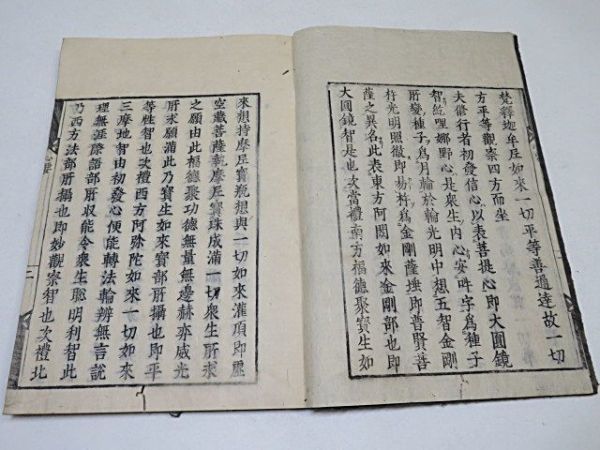 梵釋迦牟尼如來一切平等善通達故一切
方平等觀察四方而坐
夫修行者初發信心以表菩提心即大圓鏡
智紇哩娜野心是衆生内心安吽字爲種子
所變種子爲月輪於輪光明中想五智金剛
杵光明照徹即易杵爲金剛薩埵即普賢菩
薩之異名此表東方阿閦如來金剛部也即
大圓鏡智是也次當禮南方福德聚寶生如
來想持摩尼寶瓶想與一切如來灌頂即虛
空藏菩薩執摩尼寶珠成滿一切衆生所求
之願由此福德聚功德無量無邊赫亦威光
所求願滿此乃寶生如來寶部所攝也即平
等性智也次禮西方阿弥陀如來一切如來
三摩地智由初發心便能轉法輪辨無言説
理無涯際語部所収能令衆生聰明利智此
乃西方法部所攝也即妙觀察智也次禮北